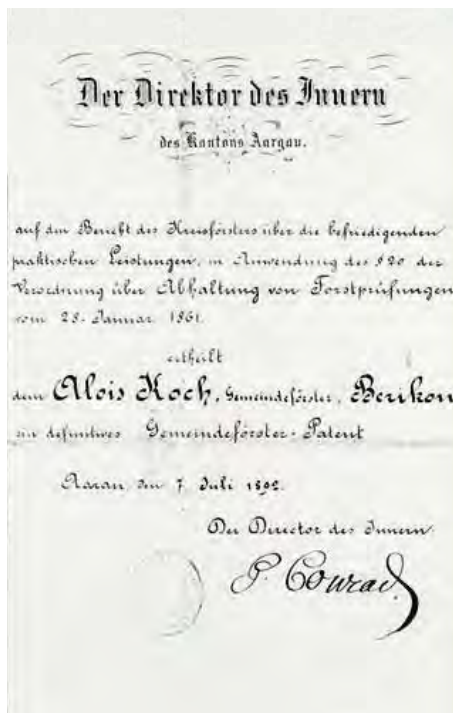 Der Direktor des Innern
des Kantons Aargau.
auf den Bericht des Kreisförsters über die befriedigenden
praktischen Leistungen, in Anwendung des § 20 der
Verordnung über Abhaltung von Forstprüfungen
vom 28. Januar 1861.
ertheilt
dem Alois Koch, Gemeindeförster, Berikon
ein definitives Gemeindeförster-Patent
Aarau, den 7. Juli 1892.
Der Director des Innern:
P. Conrad.